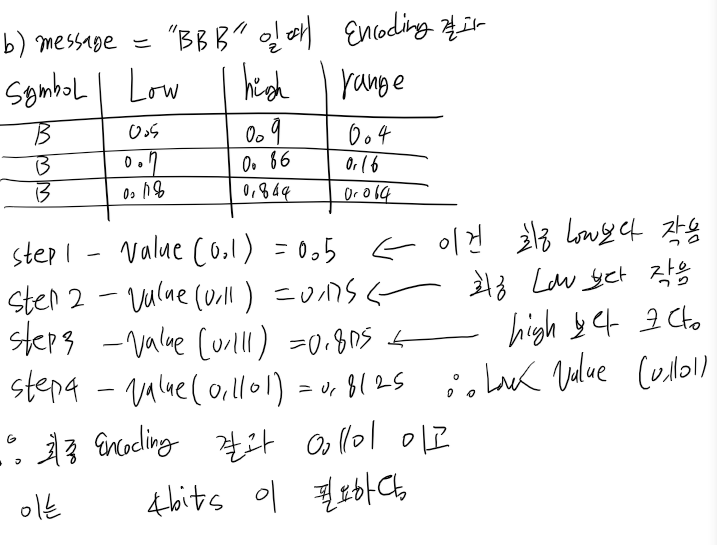 b) message = "BBB" 일때 Encoding 결과
Symbol Low high range
B 0.5 0.9 0.4
B 0.7 0.86 0.16
B 0.78 0.844 0.064
step1 - Value (0.1) = 0.5 ← 이건 최종 low보다 작음
Step 2 - Value (0.11) = 0.75 ← 최종 Low 보다 작음
step3 - Value (0.111) = 0.875 ← high 보다 크다.
step4 - Value (0.1101) = 0.8125 ∴ Low < Value (0.1101)
∴ 최종 Encoding 결과 0.1101 이고
이는 4bits 이 필요하다